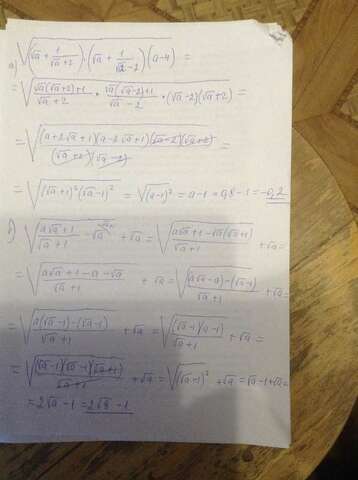 a) √((√a + 1/(√a+2)) · (√a + 1/(√a-2)) (a-4)) =
= √((√a(√a+2)+1)/(√a+2) · (√a(√a-2)+1)/(√a-2) · (√a-2)(√a+2)) =
= √(((a+2√a+1)(a-2√a+1)(√a-2)(√a+2))/((√a+2)(√a-2))) =
= √((√a+1)²(√a-1)²) = √(a-1)² = a-1 = 0,8-1 = -0,2
b) √((a√a+1)/(√a+1) - √a) + √a = √((a√a+1-√a(√a+1))/(√a+1)) + √a =
= √((a√a+1-a-√a)/(√a+1)) + √a = √((a(√a-a)-(√a-1))/(√a+1)) + √a =
= √((a(√a-1)-(√a-1))/(√a+1)) + √a = √(((√a-1)(a-1))/(√a+1)) + √a =
= √(((√a-1)(√a-1)(√a+1))/(√a+1)) + √a = √(√a-1)² + √a = √a-1+√a =
= 2√a - 1 = 2√8 - 1